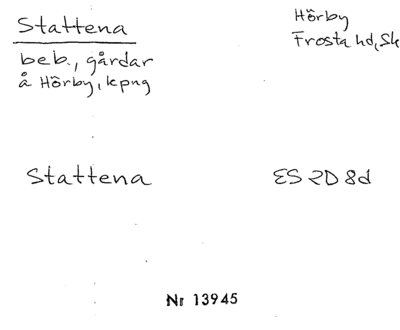 Stattena
beb., gårdar
å Hörby, kpng
Hörby
Frosta hd, Sk
Stattena
ES 2D 8d
Nr 13945